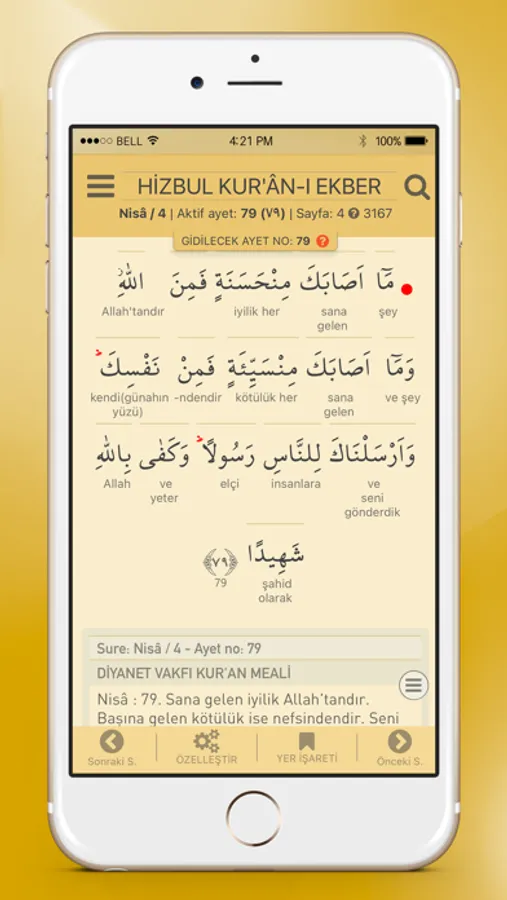 BELL 4:21 PM 100%
HİZBUL KUR'ÂN-I EKBER
Nisâ / 4 | Aktif ayet: 79 (٧٩) | Sayfa: 4 ? 3167
GİDİLECEK AYET NO: 79 ?
مَٓا اَصَابَكَ مِنْحَسَنَةٍ فَمِنَ اللّٰهِۘ
Allah'tandır iyilik her sana gelen şey
وَمَٓا اَصَابَكَ مِنْسَيِّئَةٍ فَمِنْ نَفْسِكَۜ
kendi(günahın yüzü) -ndendir kötülük her sana gelen ve şey
وَاَرْسَلْنَاكَ لِلنَّاسِ رَسُولًاۜ وَكَفٰى بِاللّٰهِ
Allah ve yeter elçi insanlara ve seni gönderdik
شَهِيدًا ﴿٧٩﴾
79 şahid olarak
Sure: Nisâ / 4 - Ayet no: 79
DİYANET VAKFI KUR'AN MEALİ
Nisâ : 79. Sana gelen iyilik Allah'tandır.
Başına gelen kötülük ise nefsindendir. Seni
Sonraki S. ÖZELLEŞTİR YER İŞARETİ Önceki S.